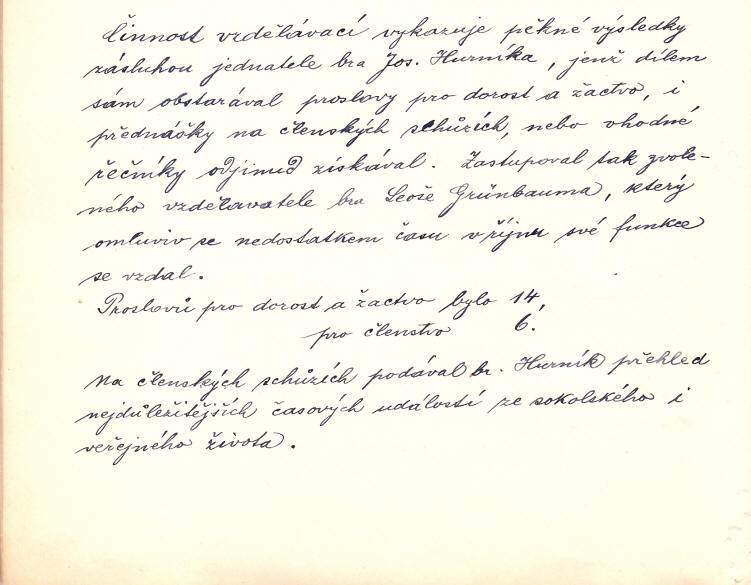 Činnost vzdělávací vykazuje pěkné výsledky
zásluhou jednatele bra Jos. Hurníka, jenž dílem
sám obstarával proslovy pro dorost a žactvo, i
přednášky na členských schůzích, nebo vhodné
řečníky odjinud získával. Zastupoval tak zvole-
ného vzdělavatele bra Leoše Grünbauma, který
omluviv se nedostatkem času v říjnu své funkce
se vzdal.
Proslovů pro dorost a žactvo bylo 14,
pro členstvo 6.
Na členských schůzích podával br. Hurník přehled
nejdůležitějších časových událostí ze sokolského i
veřejného života.